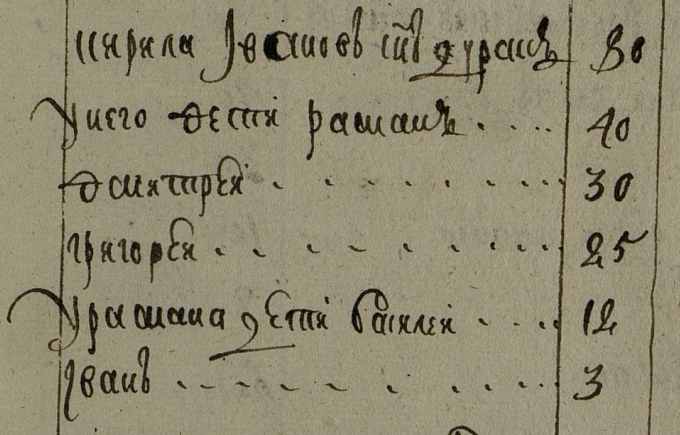 кирила Iвановъ снъ дуракъ 80
У него дети раманъ 40
дмитрей 30
григорей 25
У рамана дети василей 12
Iванъ 3